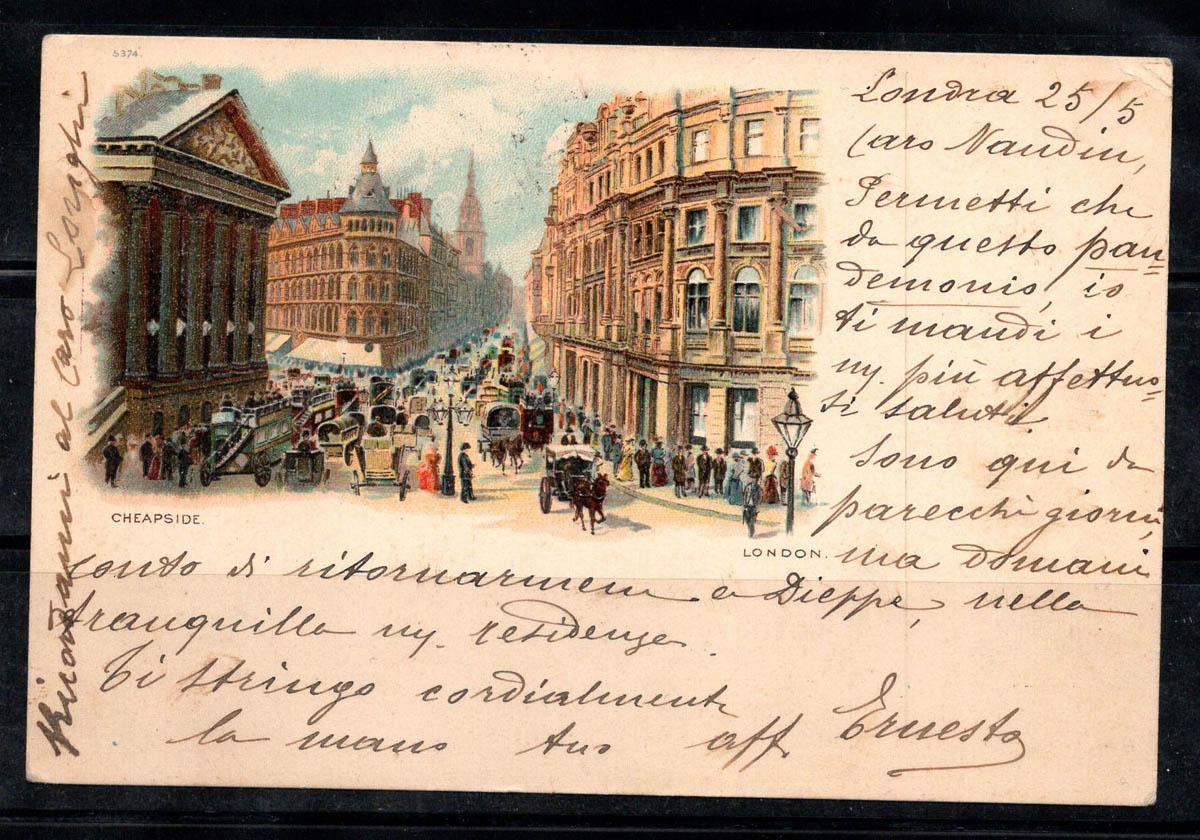 5374.
Londra 25/5
Caro Naudin,
Permetti che
da questo pan=
demonio, io
ti mandi i
my. più affettuo=
si saluti.
Sono qui da
parecchi giorni,
ma domani
conto di ritornarmene a Dieppe, nella
tranquilla my. residenza.
Ti stringo cordialmente
la mano tuo aff. Ernesto
Ricordami al caro
CHEAPSIDE.
LONDON.